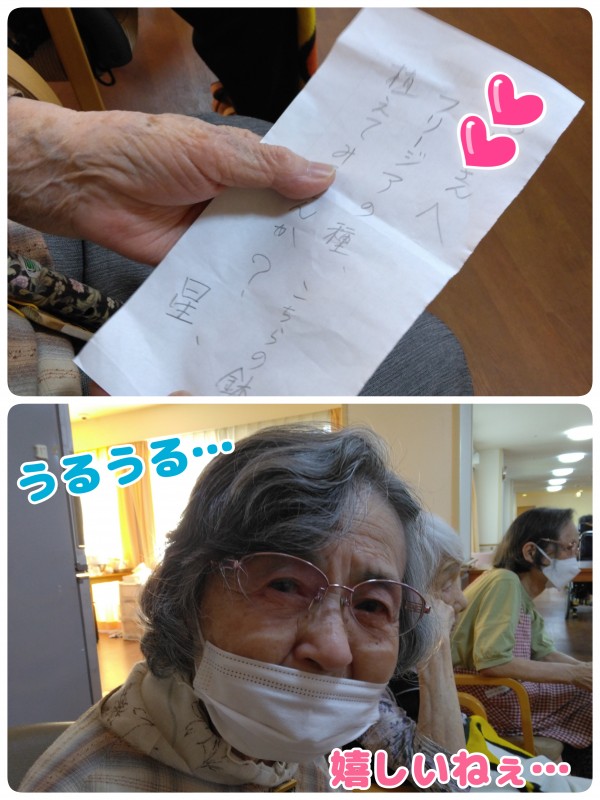 へ
フリージアの種、こちらの鉢
植えてみ んか?、
星、
うるうる…
嬉しいねぇ…